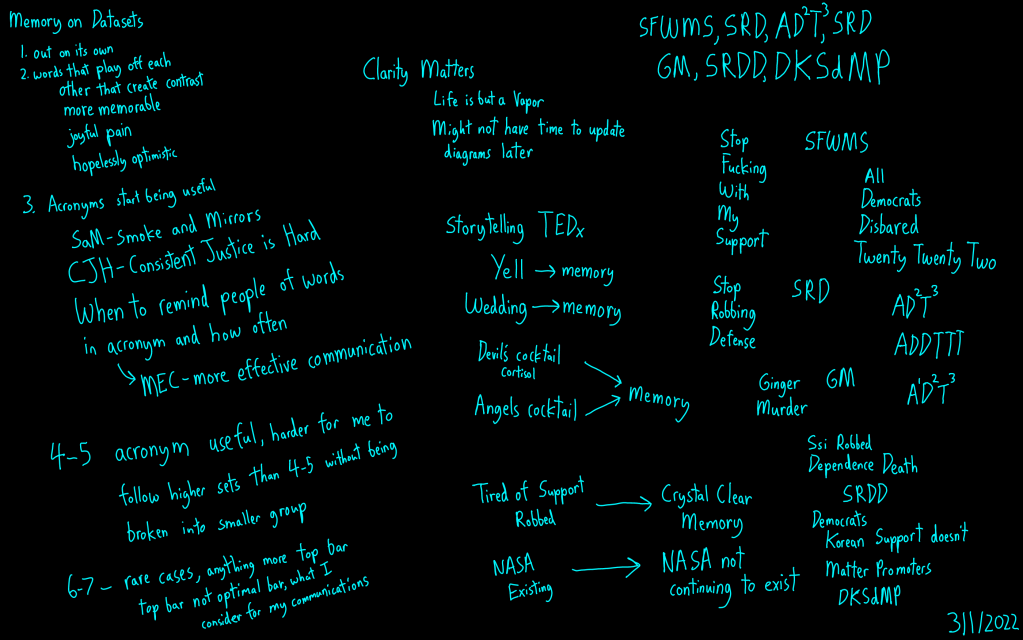 Memory on Datasets
1. out on its own
2. words that play off each
other that create contrast
more memorable
joyful pain
hopelessly optimistic
3. Acronyms start being useful
SaM-Smoke and Mirrors
CJH-Consistent Justice is Hard
When to remind people of words
in acronym and how often
↳ MEC-more effective communication
4-5 acronym useful, harder for me to
follow higher sets than 4-5 without being
broken into smaller group
6-7- rare cases, anything more top bar
top bar not optimal bar, what I
consider for my communications
Clarity Matters
Life is but a Vapor
Might not have time to update
diagrams later
Storytelling TEDx
Yell → memory
Wedding → memory
Devil's cocktail
cortisol
Angels cocktail
Memory
Tired of Support
Robbed
→ Crystal Clear
Memory
NASA
Existing
→ NASA not
continuing to exist
SFWMS, SRD, AD²T³, SRD
GM, SRDD, DKSdMP
Stop
Fucking
With
My
Support
SFWMS
All
Democrats
Disbared
Twenty Twenty Two
Stop
Robbing
Defense
SRD
AD²T³
ADDTTT
A¹D²T³
Ginger
Murder
GM
Ssi Robbed
Dependence Death
SRDD
Democrats
Korean Support doesn't
Matter Promoters
DKSdMP
3/1/2022